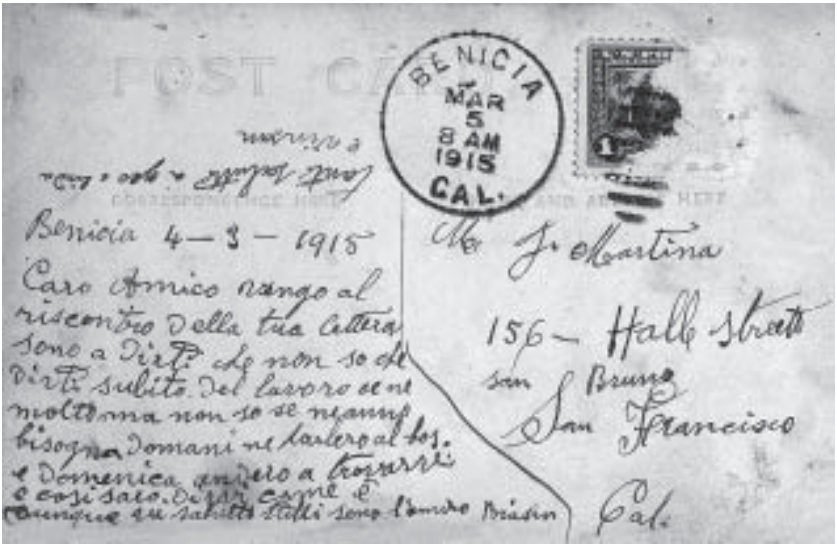 POST CARD
BENICIA
MAR
5
8 AM
1915
CAL.
1
CORRESPONDENCE HERE
AND HERE
Tanti saluti a
e
Benicia 4-3-1915
Caro Amico vengo al
riscontro della tua lettera
sono a dirti che non so che
dirti subito. Del lavoro ce ne
molto ma non so se ne anno
bisogna Domani ne parlero al bos.
e Domenica andero a trovarvi
e cosi saro. Dirar come è
saluto sono l'amico Biasin
Mr J. Martina
156 - Halle Streett
san Bruno
San Francisco
Cal.